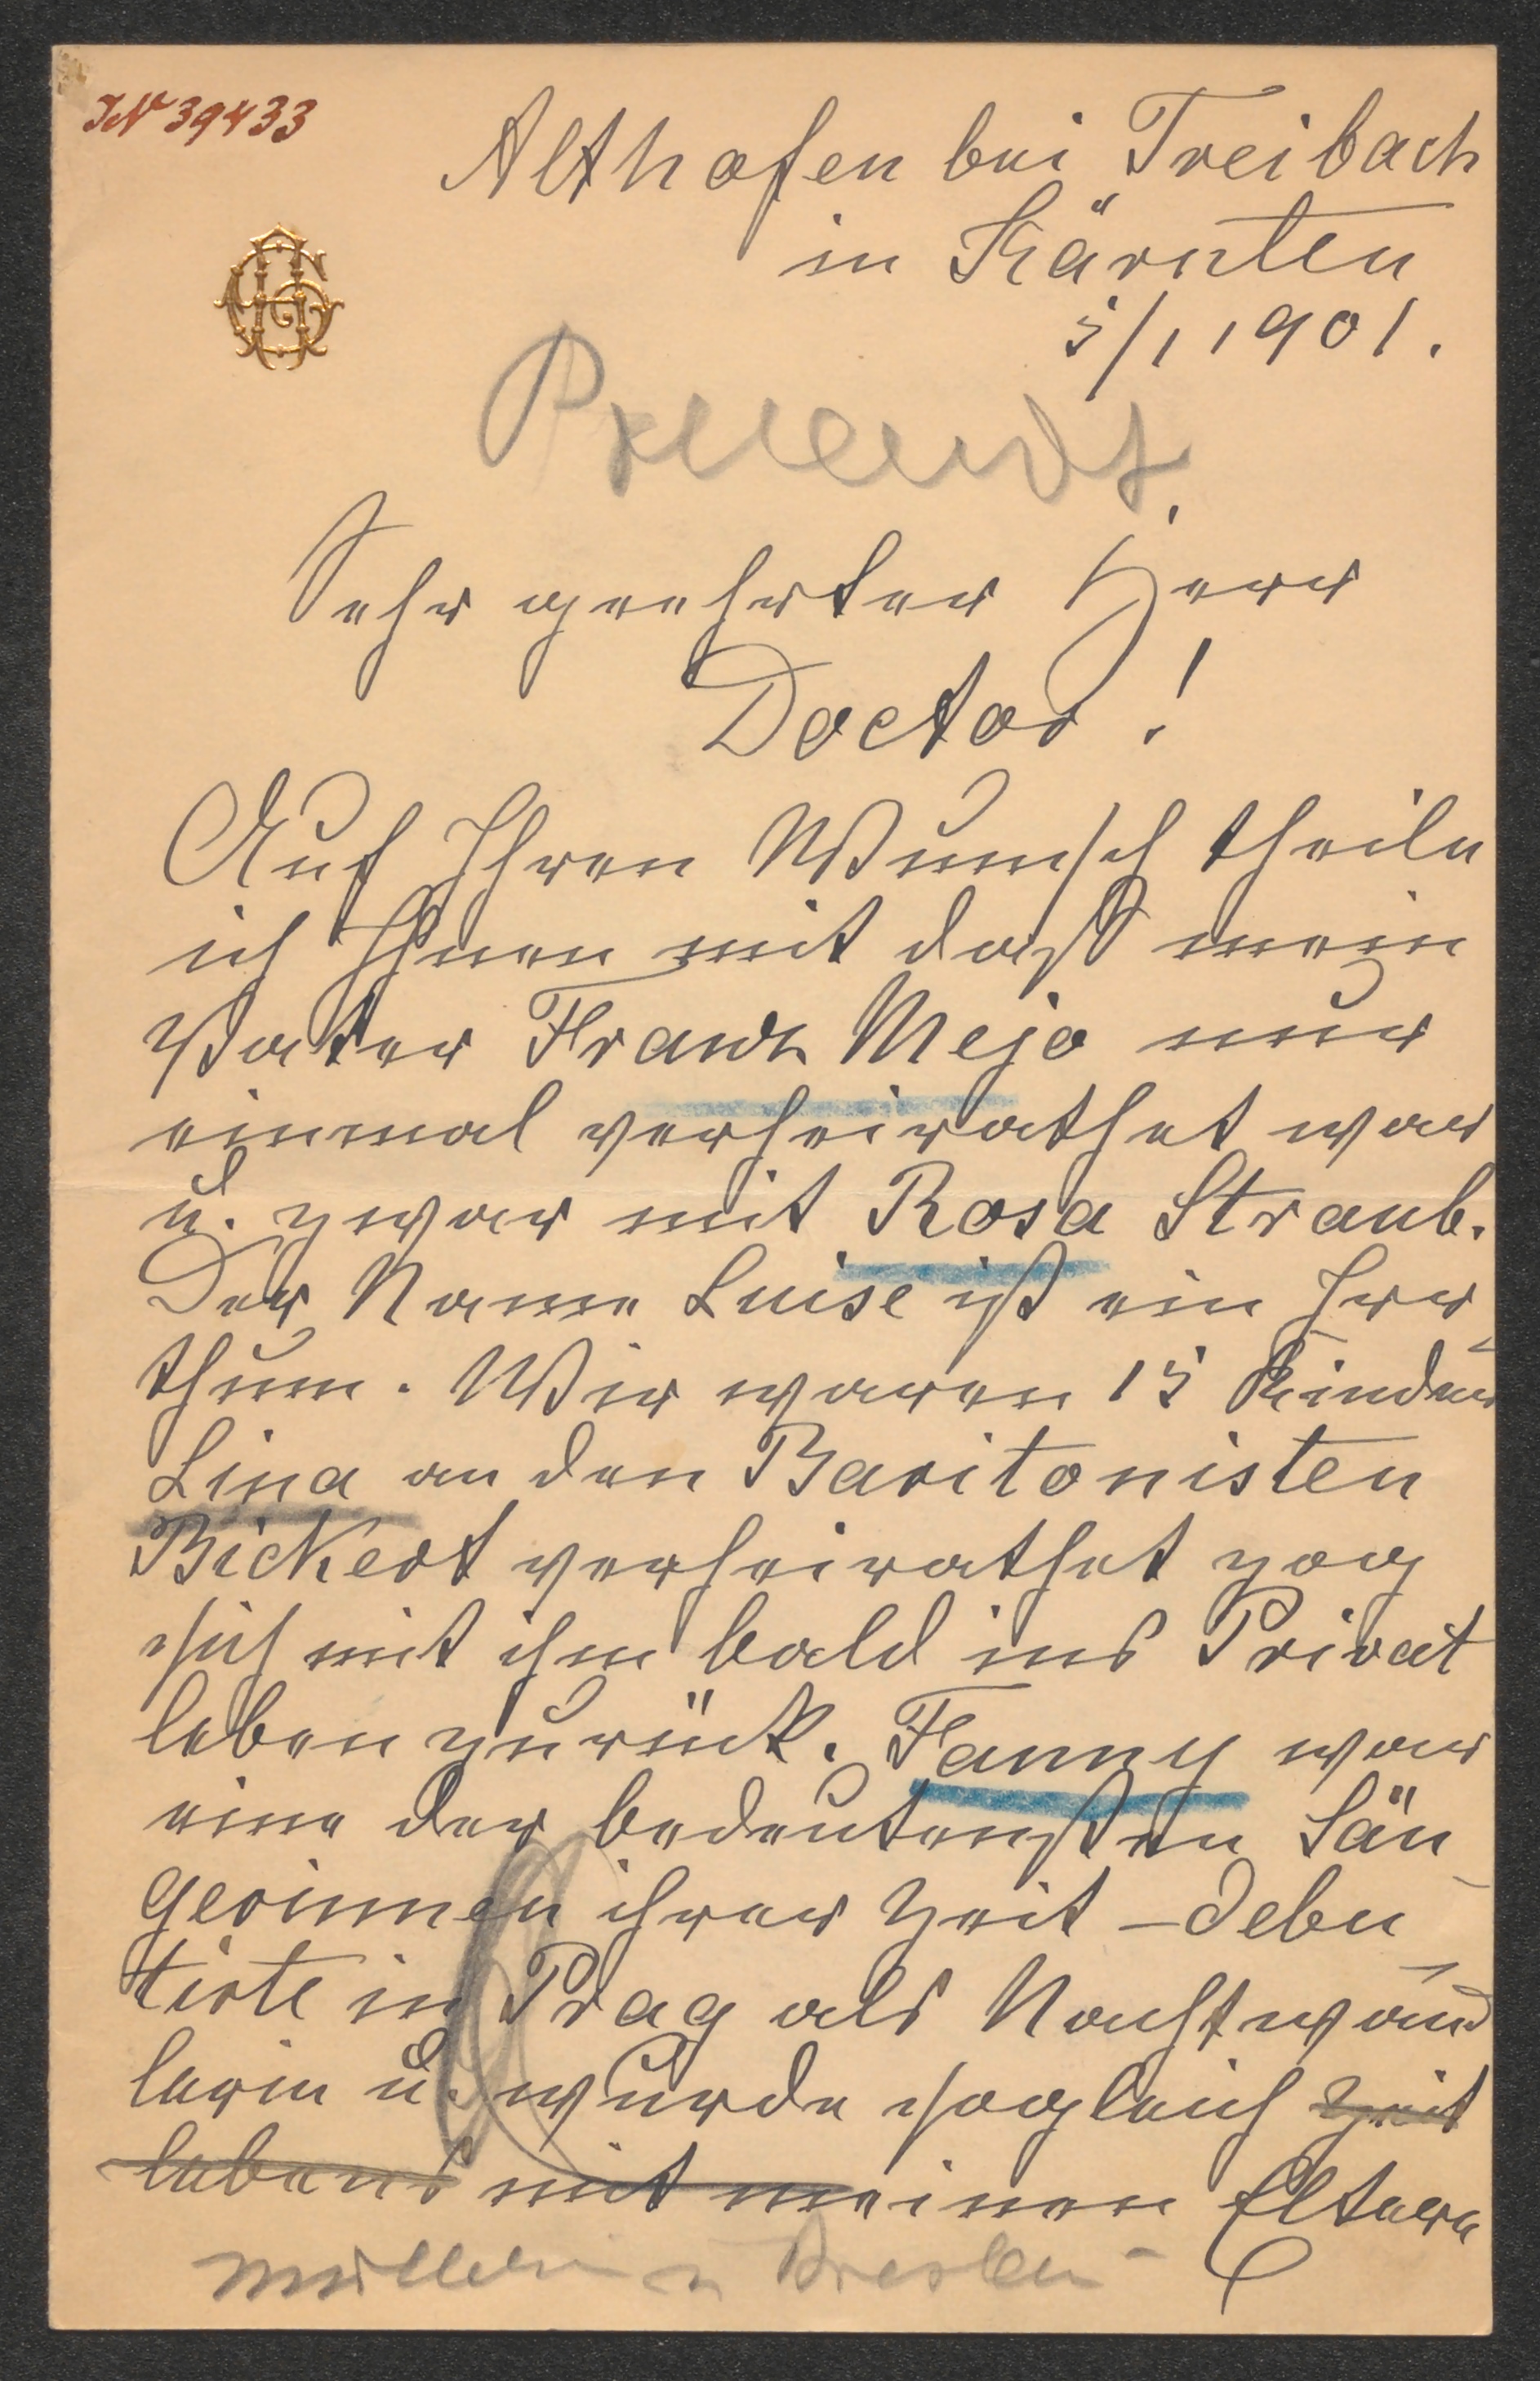 IN 39433
Althofen bei Treibach
in Kärnten
5/1 1901.
Sehr geehrter Herr
Doctor!
Auf Ihren Wunsch theile
ich Ihnen mit daß mein
Vater Franz Mejo nur
einmal verheirathet war
u. zwar mit Rosa Straub.
Der Name Luise ist ein Irr-
thum. Wir waren 15 Kinder
Lina an den Baritonisten
Bickert verheirathet zog
sich mit ihm bald ins Privat
leben zurück. Fanny war
eine der bedeutensten Sän-
gerinnen ihrer Zeit – debu-
tirte in Prag als Nachtwand-
lerin u. wurde sogleich zeit
lebens mit meinen Eltern